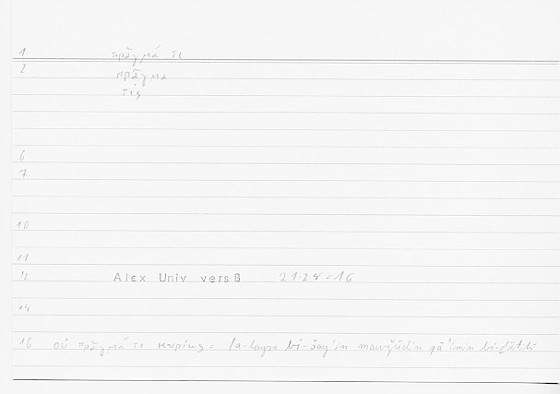 1 πρᾶγμά τι
2 πρᾶγμα
τις
6
7
10
11
12 Alex Univ vers B 21-28 = 16
14
18 οὐ πρᾶγμά τι κυρίως = fa-laysa bi-šay'in mawǧūdin qā'imin bi-ḏātihi